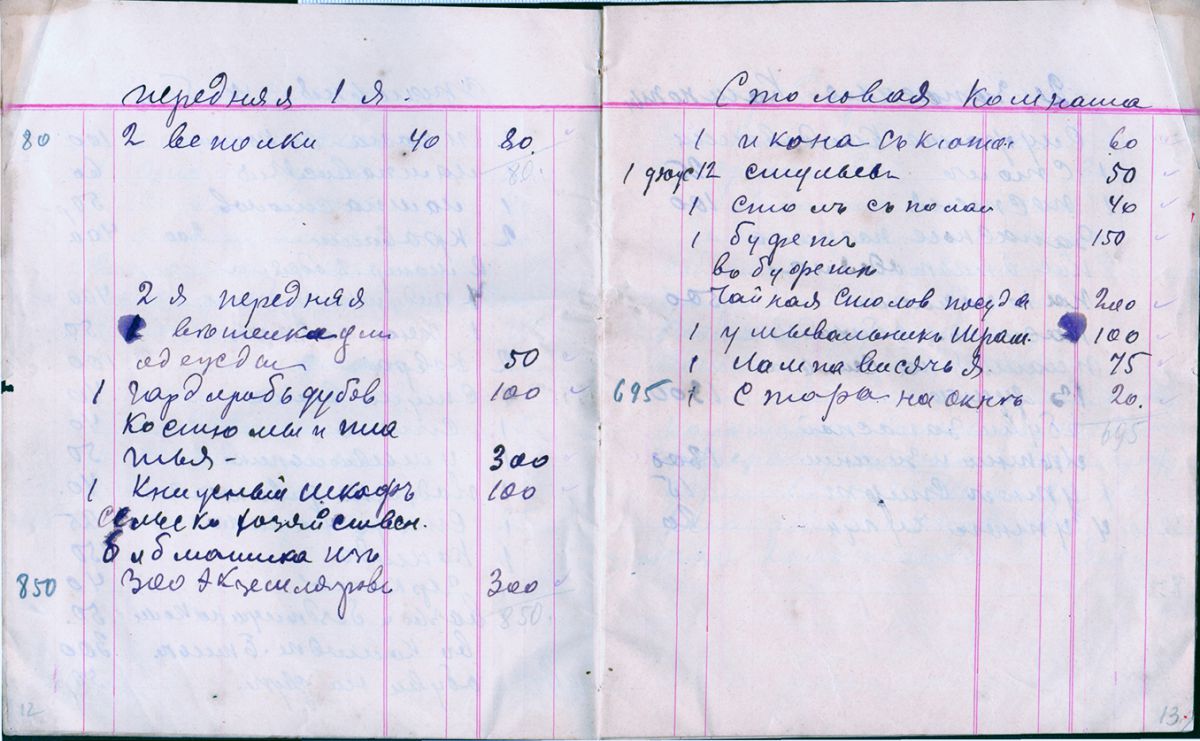 передняя 1 я.
80 2 вешалки 40 80.
80.
2 я передняя
1 вешалка для
одежды 50
1 гардиробъ дубов 100
Костюмы и пла
тья - 300
1 Книжный шкафъ 100
сельско хозяйствен.
библиатика изъ
850 300 Экземляровъ 300
850.
12
Столовая Комната
1 икона съ киотом 60
1 дюж 12 стульевъ 50
1 столъ 40
1 буфетъ 150
въ буфетъ
Чайная столов посуда 200
1 умывальникъ Мрам. 100
1 Лампа висячья 75
695 1 Стора на окнъ 20.
695
13.